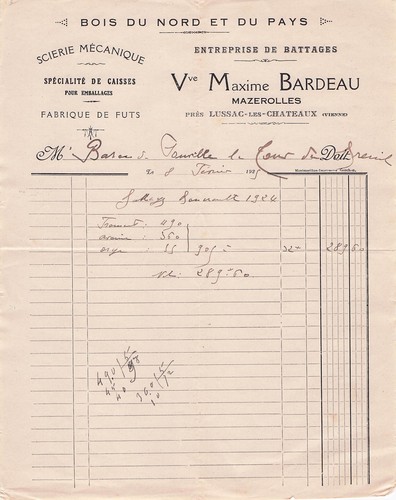 BOIS DU NORD ET DU PAYS
SCIERIE MÉCANIQUE
SPÉCIALITÉ DE CAISSES
POUR EMBALLAGES
FABRIQUE DE FUTS
ENTREPRISE DE BATTAGES
Vve Maxime BARDEAU
MAZEROLLES
PRÈS LUSSAC-LES-CHATEAUX (VIENNE)
M Baron de la Tour du Breuil Doit
le 8 Février 192
1924
Froment : 490
avoine : 360
orge : 55 905 32 289 60
289 60
490 5
98
40
360 5
10 72